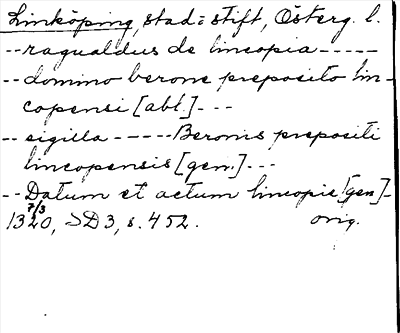 Linköping, stad o stift, Österg. l.
-- ragualdus de lincopia -----
-- domino berone preposito lin-
copensi [abl.] ---
-- sigilla ----- Beronis prepositi
lincopensis [gen.] ---
-- Datum et actum lincopie [gen] -
7/3
1320, SD3, s. 452. orig.